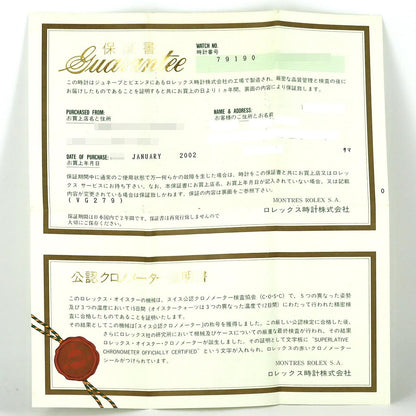 保証書
Guarantee
WATCH NO.
時計番号
79190
この時計はジュネーブとビエンヌにあるロレックス時計株式会社の工場で製造され、厳密な品質管理と検査の後に
お届けしたものであることを証明すると共にお買上の日より1ヵ年間、裏面の内容により保証致します。
PURCHASED FROM:
お買上店名と住所
NAME & ADDRESS:
お客様のご住所とお名前
サマ
DATE OF PURCHASE:
JANUARY 2002
お買上年月日
保証期間中に通常のご使用状態で万一何らかの故障を生じた場合は、時計をこの保証書と共にお買上店又はロレッ
クス サービスにお持ち下さい。なお、本保証書にお買上店名、お買上年月日が記入されていない場合、又は記載
内容が変更されている場合は保証致しかねます。保証の内容は裏面をご参照下さい。
(VG279)
MONTRES ROLEX S.A.
ロレックス時計株式会社
保証期間は日本国内で2年間です。保証書は再発行致しませんので
大切にご保存ください。
公認クロノメーター証明書
このロレックス・オイスターの機械は、スイス公認クロノメーター検査協会(C・O・S・C)で、5つの異なった姿勢
及び3つの温度において15日間(オイスタークォーツは3つの異なった温度で12日間)にわたって行われた精密検
査に合格したものであることを証明いたします。
その結果としてこの機械は「スイス公認クロノメーター」の称号を獲得しました。この厳しい公認検定に合格した後、
さらにロレックス社の研究所において機械及びケースについての厳重な最終検査が行われ、その結果
ロレックス・オイスター・クロノメーターが誕生しました。その証明として文字板に“SUPERLATIVE
CHRONOMETER OFFICIALLY CERTIFIED”という文字が入れられ、ロレックスの赤いクロノメーター
シールがつけられています。
MONTRES ROLEX S.A.
ロレックス時計株式会社